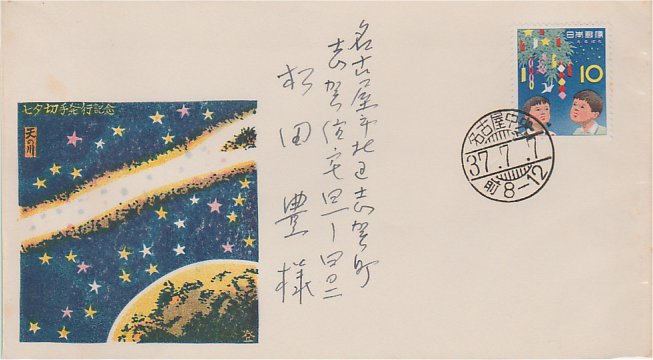 七夕切手発行記念
天の川
登
名古屋市北区志賀町
志賀住宅四ー四二
松田豊様
日本郵便
たなばた
10
名古屋中央
37.7.7
前8-12